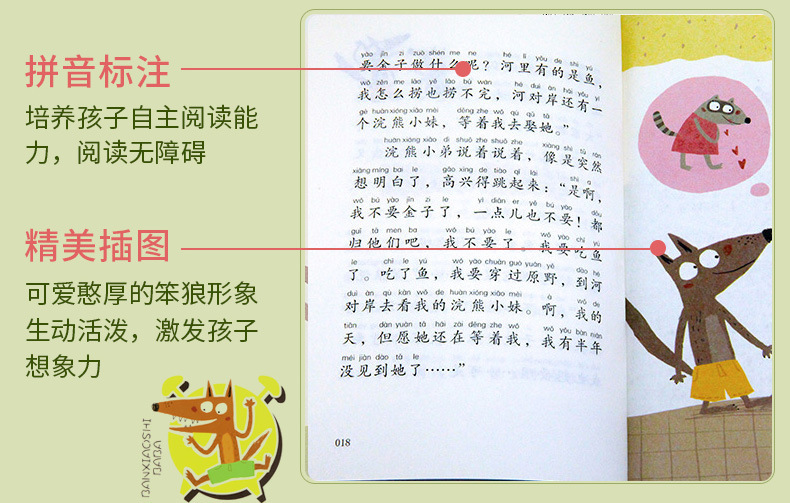 拼音标注
培养孩子自主阅读能
力，阅读无障碍
精美插图
可爱憨厚的笨狼形象
生动活泼，激发孩子
想象力
BANXIAOSHI
BABA
yào jīn zi zuò shén me ne hé lǐ yǒu de shì yú
要金子做什么呢？河里有的是鱼，
wǒ zěn me lāo yě lāo bù wán hé duì àn hái yǒu yí
我怎么捞也捞不完，河对岸还有一
gè huàn xióng xiǎo mèi děng zhe wǒ qù qǔ tā
个浣熊小妹，等着我去娶她。”
huàn xióng xiǎo dì shuō zhe shuō zhe xiàng shì tū rán
浣熊小弟说着说着，像是突然
xiǎng míng bai le gāo xìng de tiào qǐ lái shì a
想明白了，高兴得跳起来：“是啊，
wǒ bú yào jīn zi le yì diǎn er yě bú yào dōu
我不要金子了，一点儿也不要！都
guī tā men ba wǒ bú yào le wǒ yào chī yú
归他们吧，我不要了。我要吃鱼
le chī le yú wǒ yào chuān guò yuán yě dào hé
了。吃了鱼，我要穿过原野，到河
duì àn qù kàn wǒ de huàn xióng xiǎo mèi à wǒ de
对岸去看我的浣熊小妹。啊，我的
tiān dàn yuàn tā hái zài děng zhe wǒ wǒ yǒu bàn nián
天，但愿她还在等着我，我有半年
méi jiàn dào tā le
没见到她了……”
018